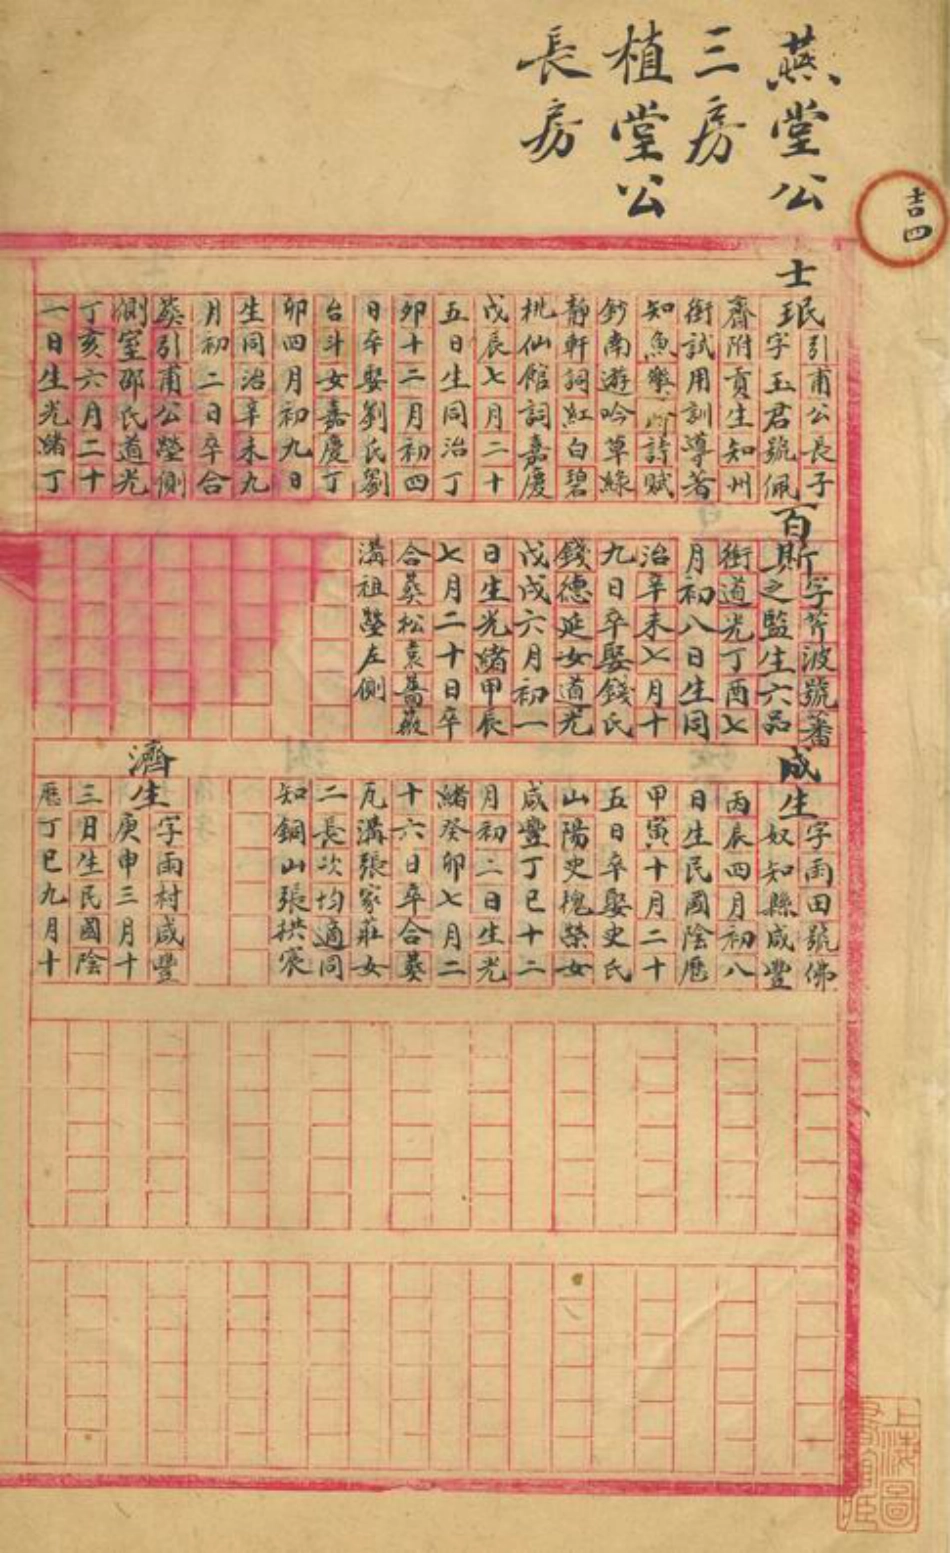 燕堂公
三房
植堂公
長房
吉四
士珉
引甫公長子
字玉君號佩
齋附貢生知州
銜試用訓導著
知魚樂 詩賦
鈔南遊吟草綠
靜軒詞紅白碧
桃仙館詞嘉慶
戊辰七月二十
五日生同治丁
卯十二月初四
日卒娶劉氏劉
台斗女嘉慶丁
卯四月初九日
生同治辛未九
月初二日卒合
葬引甫公塋側
側室邵氏道光
丁亥六月二十
一日生光緒丁
百斯
字芾波號蕃
之監生六品
銜道光丁酉七
月初八日生同
治辛未七月十
九日卒娶錢氏
錢德延女道光
戊戌六月初一
日生光緒甲辰
七月二十日卒
合葬松袁薔薇
溝祖塋左側
成生
字雨田號佛
奴知縣咸豐
丙辰四月初八
日生民國陰曆
甲寅十月二十
五日卒娶史氏
山陽史槐榮女
咸豐丁巳十二
月初二日生光
緒癸卯七月二
十六日卒合葬
瓦溝張家莊女
二長次均適同
知銅山張拱宸
濟生
字雨村咸豐
庚申三月十
三日生民國陰
曆丁巳九月十
上海圖
書館臧